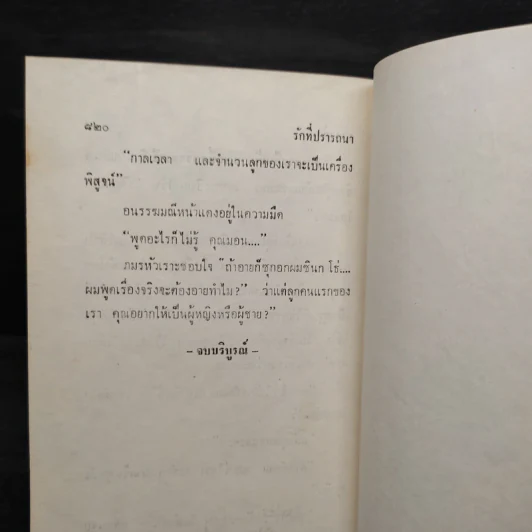 ๘๒๐ รักที่ปรารถนา
“กาลเวลา และจำนวนลูกของเราจะเป็นเครื่อง
พิสูจน์”
อนรรฆมณีหน้าแดงอยู่ในความมืด
“พูดอะไรก็ไม่รู้ คุณเมอน....”
ภมรหัวเราะชอบใจ “ถ้าอายก็ซุกอกผมซินก โธ่....
ผมพูดเรื่องจริงจะต้องอายทำไม?” ว่าแต่ลูกคนแรกของ
เรา คุณอยากให้เป็นผู้หญิงหรือผู้ชาย?”
– จบบริบูรณ์ –